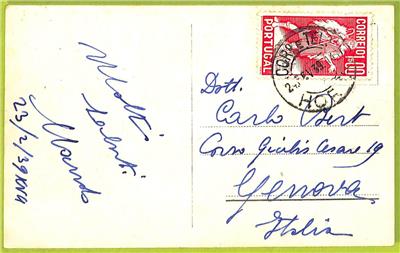 Molti
saluti
23/2/39 XVII
CORREIO
1$00
PORTUGAL
CORREIO
HOR
Dott.
Carlo Bert
Corso Giulio Cesare 19
Genova
Italia